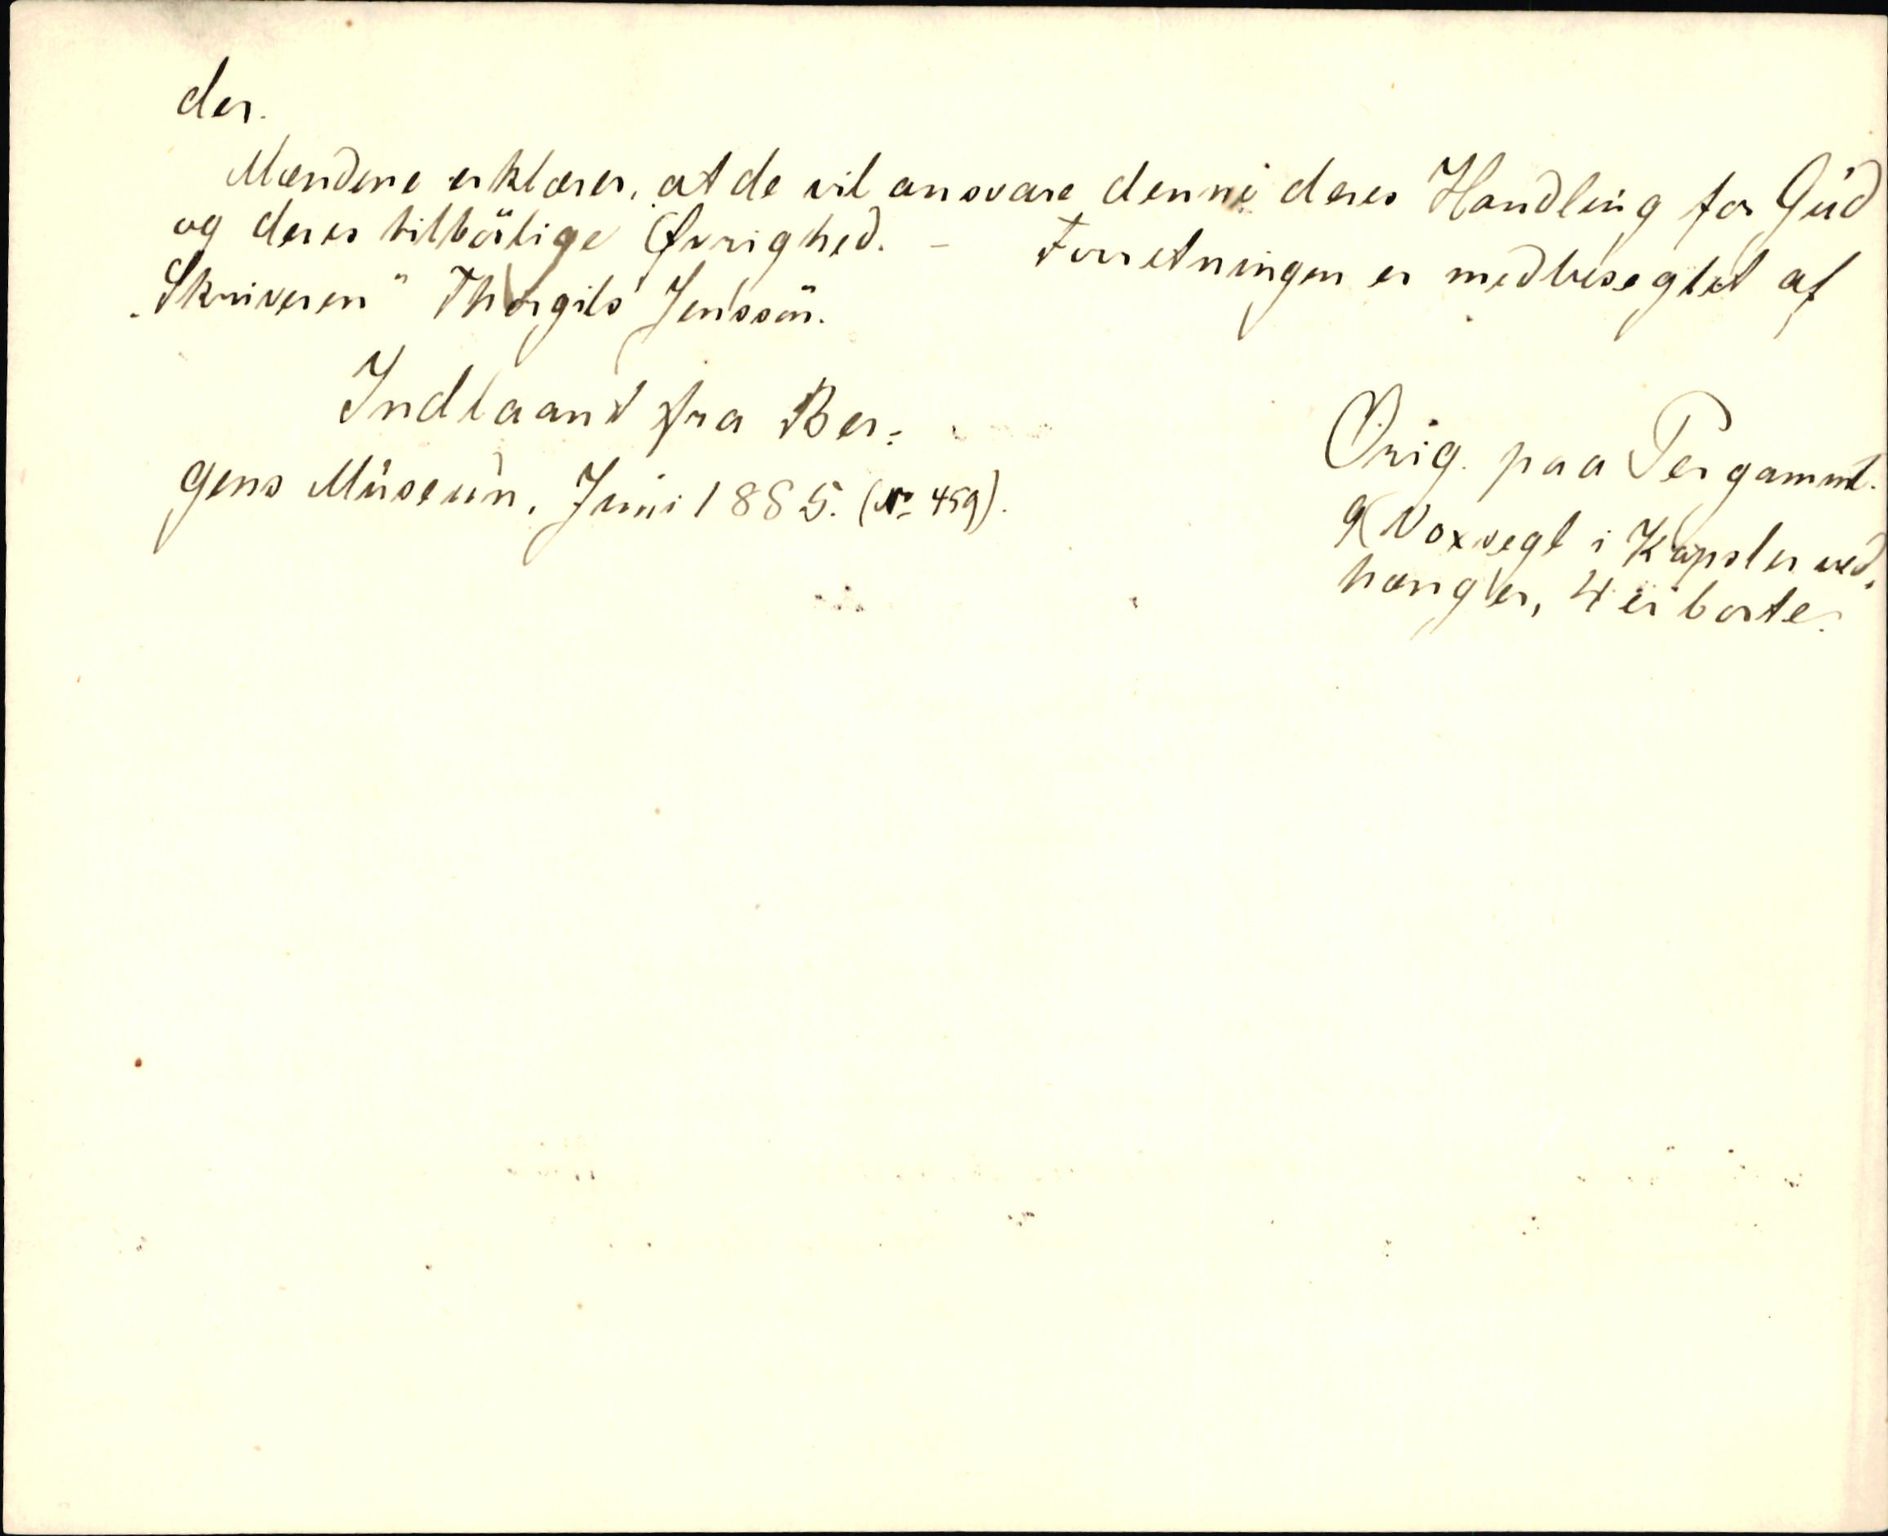 der.
Mændene erklærer, at de vil ansvare denne deres Handling for Gud
og deres tilbörlige Øvrighed. – Forretningen er medbeseglet af
"Skriveren" Thorgils Jenssön.
Indlaant fra Ber-
gens Museum, Juni 1885. (No 459).
Orig. paa Pergament.
9 Voxsegl i Kapsler ved-
hænger, 4 er borte.